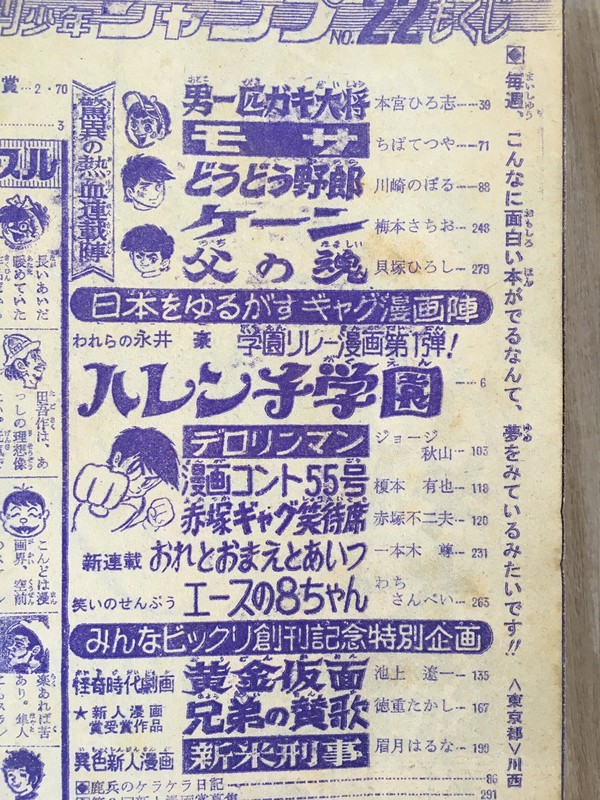 少年ジャンプNO.22もくじ
驚異の熱血連載陣
男一匹ガキ大将 本宮ひろ志…39
モサ ちばてつや…71
どうどう野郎 川崎のぼる…88
ケーン 梅本さちお…248
父の魂 貝塚ひろし…279
日本をゆるがすギャグ漫画陣
われらの永井豪 学園リレー漫画第1弾!
ハレンチ学園…6
デロリンマン ジョージ秋山…103
漫画コント55号 榎本有也…118
赤塚ギャグ笑待席 赤塚不二夫…120
新連載 おれとおまえとあいつ 一本木尊…231
笑いのせんぷう エースの8ちゃん わちさんぺい…263
みんなビックリ創刊記念特別企画
怪奇時代劇画 黄金仮面 池上遼一…135
★新人漫画賞受賞作品 兄弟の賛歌 徳重たかし…167
異色新人漫画 新米刑事 眉月はるな…199
■鹿兵のケラケラ日記…86
291
◆毎週、こんなに面白い本がでるなんて、夢をみているみたいです!!
<東京都>川西
賞…2・70
…3
長いあいだ
暖めていた
田吾作は、あ
っしの理想像
こんどは漫
画界、空前
薬あれば苦
あり。隼人